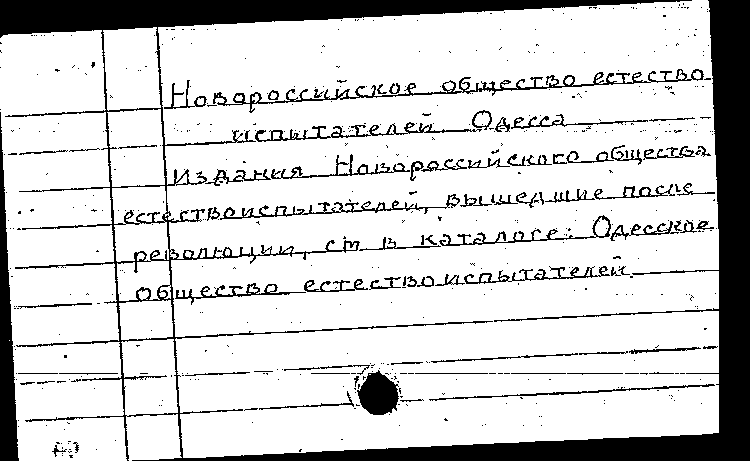 Новороссийское общество естество
испытателей Одесса
Издания Новороссийского общества
естествоиспытателей, вышедшие после
революции, см в каталоге: Одесское
общество естествоиспытателей.